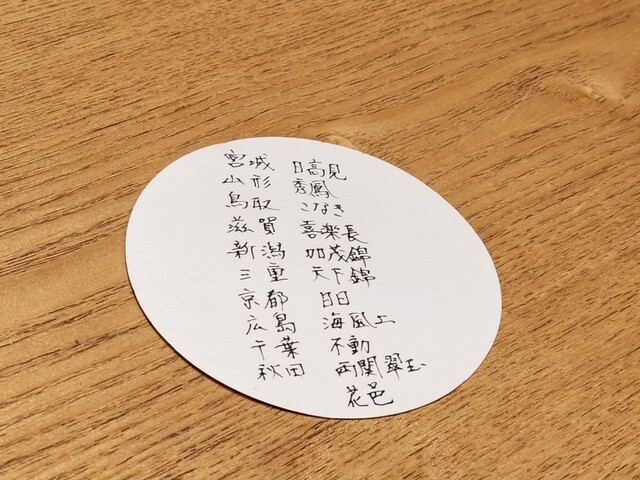 宮城 日高見
山形 秀鳳
鳥取 こなき
滋賀 喜楽長
新潟 加茂錦
三重 天下錦
京都 日日
広島 海風土
千葉 不動
秋田 両関翠玉
花邑